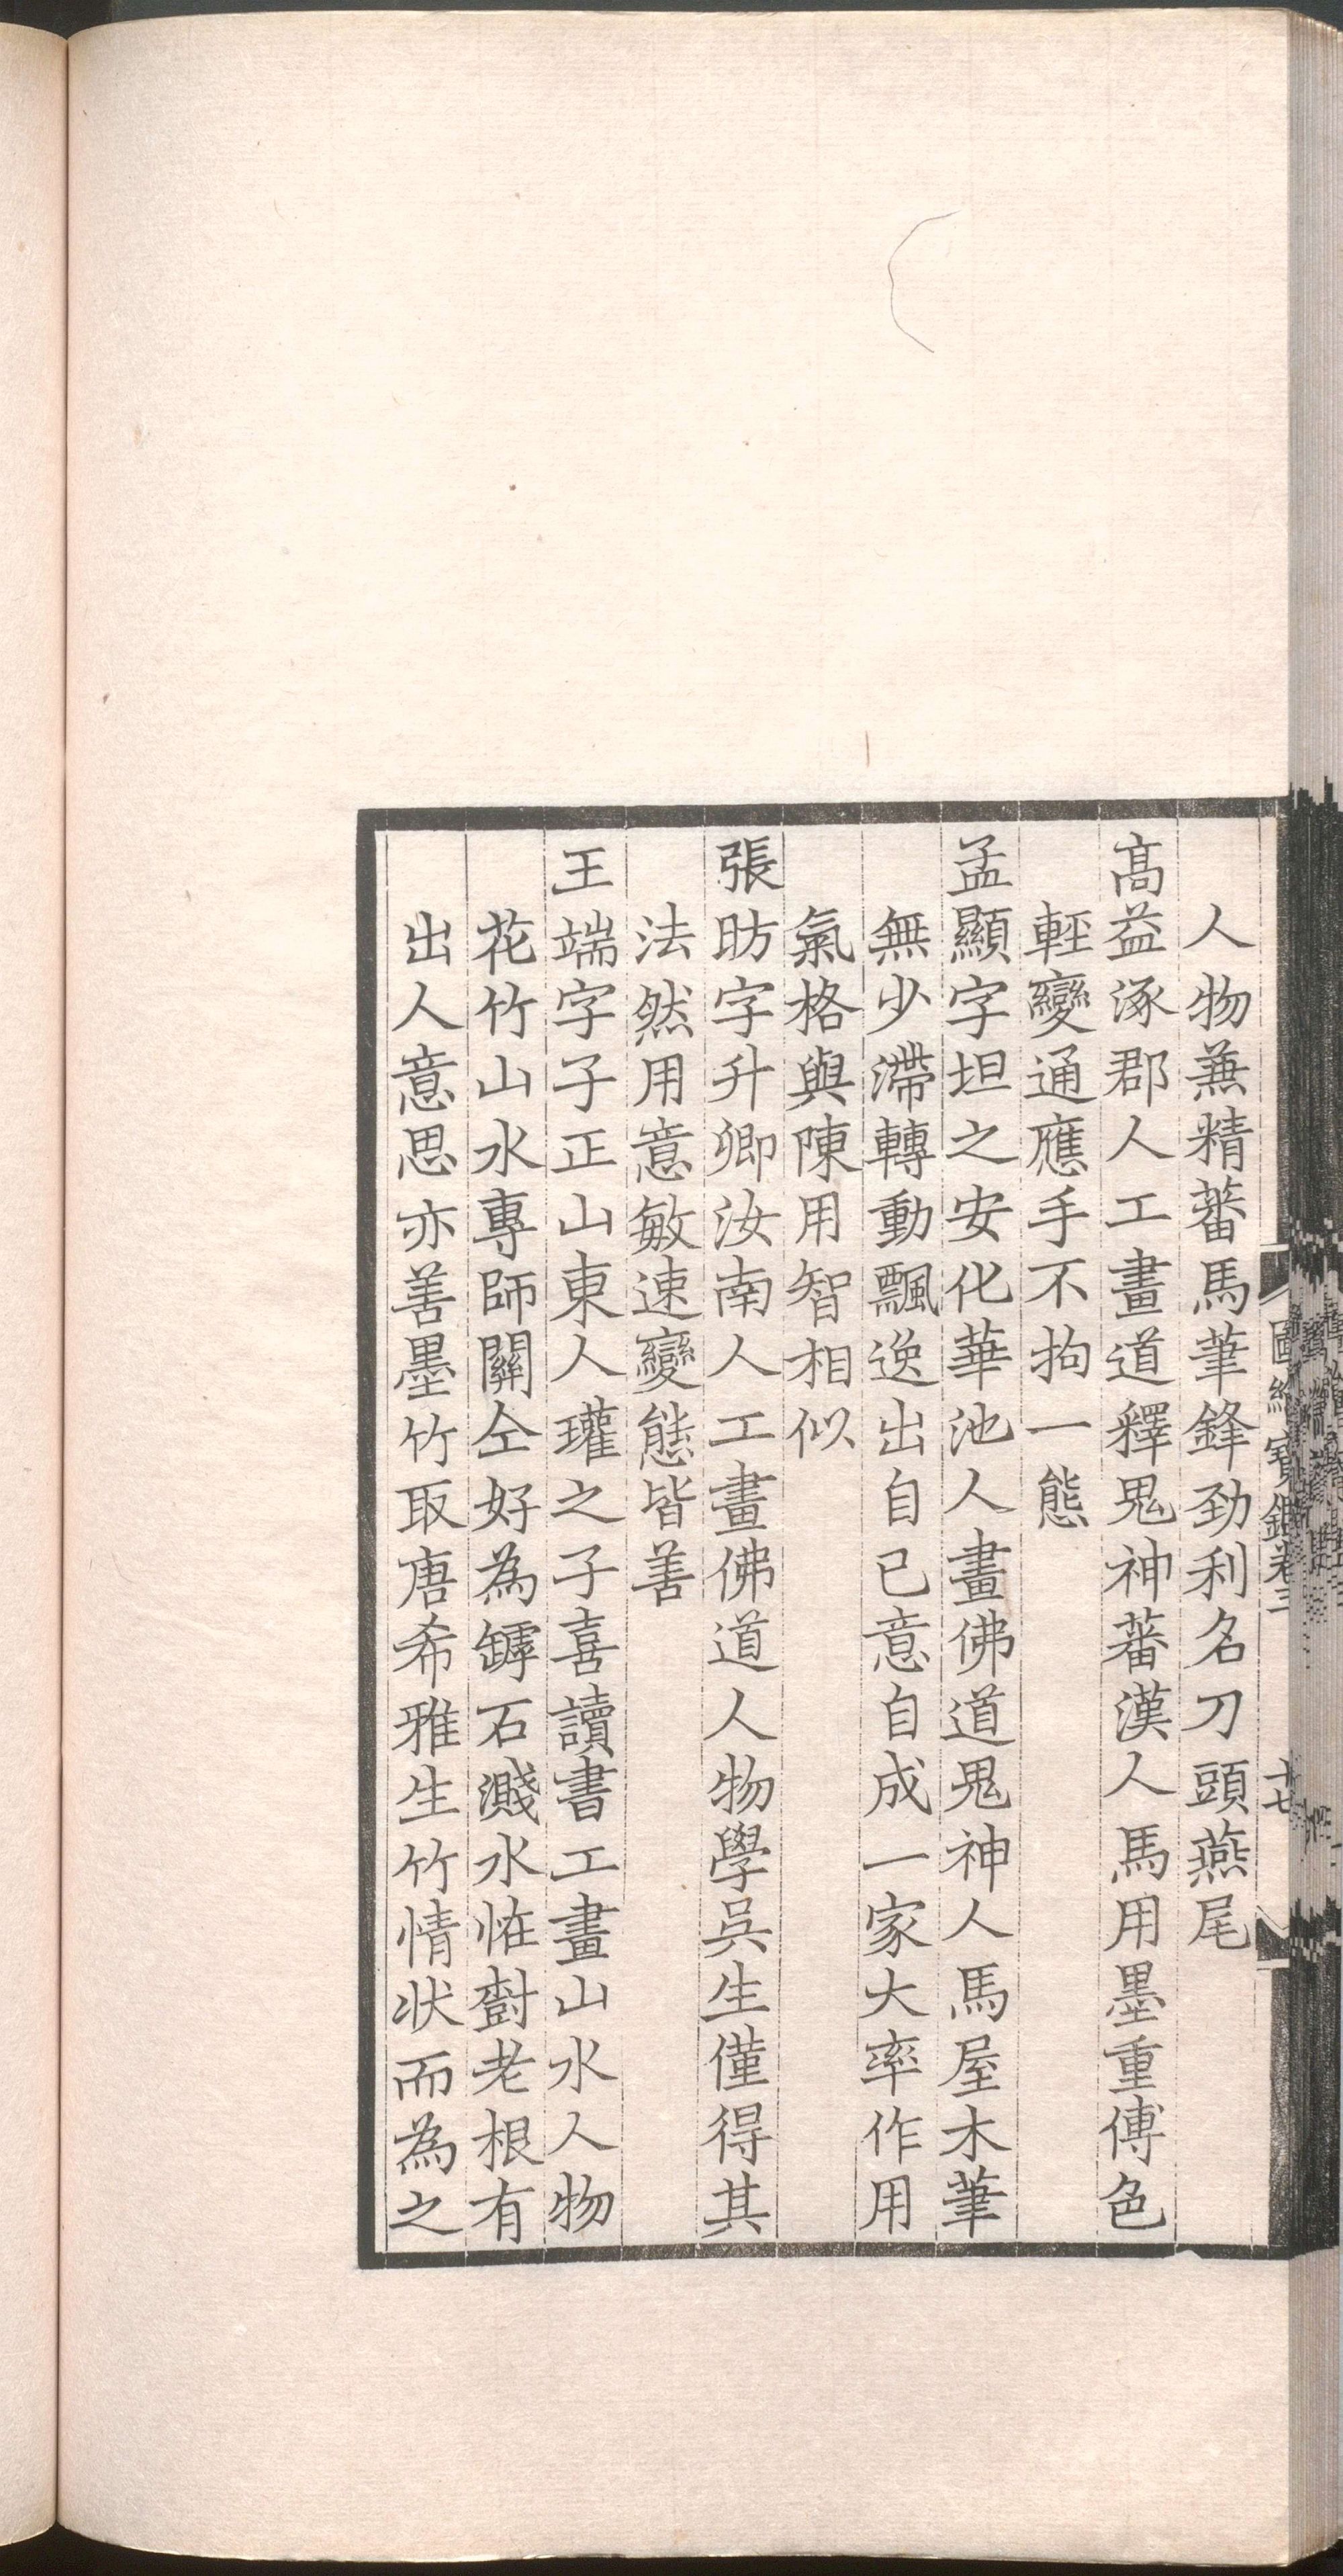 人物兼精蕃馬筆鋒勁利名刀頭燕尾
髙益涿郡人工畫道釋鬼神蕃漢人馬用墨重傅色
輕變通應手不拘一態
孟顯字坦之安化華池人畫佛道鬼神人馬屋木筆
無少滯轉動飄逸出自已意自成一家大率作用
氣格與陳用智相似
張昉字升卿汝南人工畫佛道人物學吳生僅得其
法然用意敏速變態皆善
王端字子正山東人瓘之子喜讀書工畫山水人物
花竹山水專師關仝好為罅石濺水恠樹老根有
出人意思亦善墨竹取唐希雅生竹情状而為之
圖繪寶鑑卷三
十七